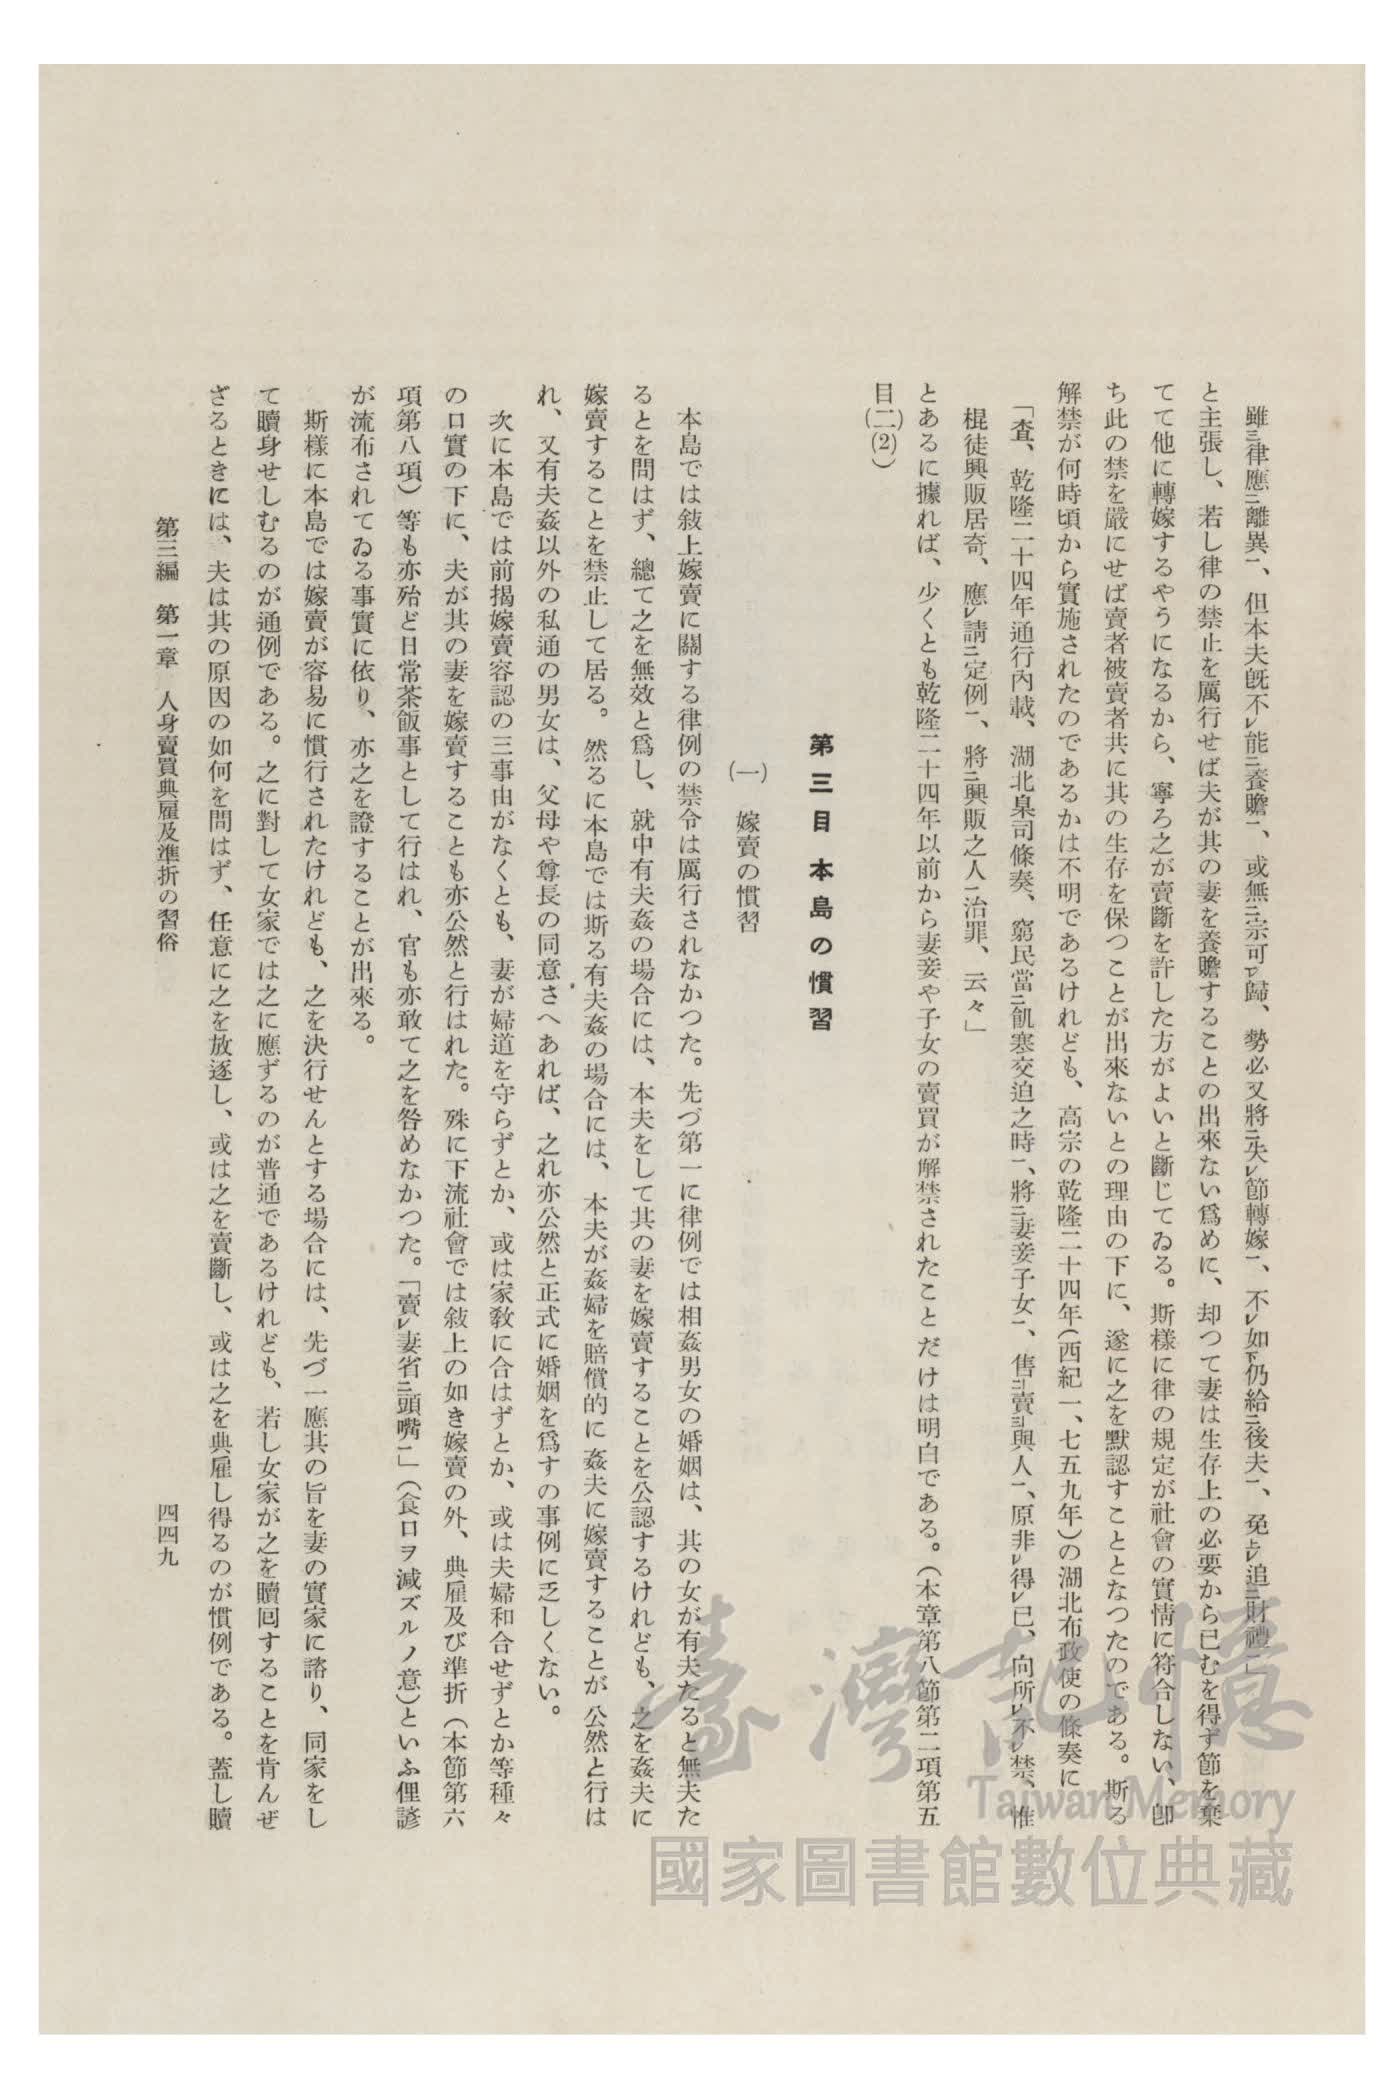 雖三律應二離異一、但本夫旣不レ能二養贍一、或無二宗可一レ歸、勢必又將三失レ節轉嫁一、不レ如下仍給二後夫一、免上レ追二財禮一」
と主張し、若し律の禁止を厲行せば夫が其の妻を養贍することの出來ない爲めに、却つて妻は生存上の必要から已むを得ず節を棄
てて他に轉嫁するやうになるから、寧ろ之が賣斷を許した方がよいと斷じてゐる。斯樣に律の規定が社會の實情に符合しない、卽
ち此の禁を嚴にせば賣者被賣者共に其の生存を保つことが出來ないとの理由の下に、遂に之を默認すこととなつたのである。斯る
解禁が何時頃から實施されたのであるかは不明であるけれども、高宗の乾隆二十四年(西紀一、七五九年)の湖北布政使の條奏に
「査、乾隆二十四年通行內載、湖北臬司條奏、窮民當二飢寒交迫之時一、將二妻妾子女一、售二賣與人一、原非レ得レ已、向所レ不レ禁、惟
棍徒興販居奇、應レ請二定例一、將二興販之人一治罪、云々」
とあるに據れば、少くとも乾隆二十四年以前から妻妾や子女の賣買が解禁されたことだけは明白である。(本章第八節第二項第五
目(二)(2))
第三目 本島の慣習
(一) 嫁賣の慣習
本島では敍上嫁賣に關する律例の禁令は厲行されなかつた。先づ第一に律例では相姦男女の婚姻は、其の女が有夫たると無夫た
るとを問はず、總て之を無效と爲し、就中有夫姦の場合には、本夫をして其の妻を嫁賣することを公認するけれども、之を姦夫に
嫁賣することを禁止して居る。然るに本島では斯る有夫姦の場合には、本夫が姦婦を賠償的に姦夫に嫁賣することが公然と行は
れ、又有夫姦以外の私通の男女は、父母や尊長の同意さへあれば、之れ亦公然と正式に婚姻を爲すの事例に乏しくない。
次に本島では前揭嫁賣容認の三事由がなくとも、妻が婦道を守らずとか、或は家敎に合はずとか、或は夫婦和合せずとか等種々
の口實の下に、夫が其の妻を嫁賣することも亦公然と行はれた。殊に下流社會では敍上の如き嫁賣の外、典雇及び準折(本節第六
項第八項)等も亦殆ど日常茶飯事として行はれ、官も亦敢て之を咎めなかつた。「賣レ妻省二頭嘴一」(食口ヲ減ズルノ意)といふ俚諺
が流布されてゐる事實に依り、亦之を證することが出來る。
斯樣に本島では嫁賣が容易に慣行されたけれども、之を決行せんとする場合には、先づ一應其の旨を妻の實家に諮り、同家をし
て贖身せしむるのが通例である。之に對して女家では之に應ずるのが普通であるけれども、若し女家が之を贖回することを肯んぜ
ざるときには、夫は其の原因の如何を問はず、任意に之を放逐し、或は之を賣斷し、或は之を典雇し得るのが慣例である。蓋し贖
第三編 第一章 人身賣買典雇及準折の習俗
四四九
臺灣記憶
Taiwan Memory
國家圖書館數位典藏